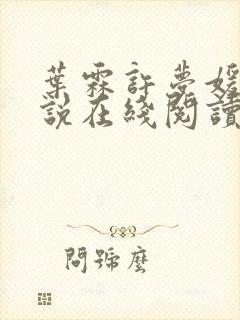 葉霖許夢媛
說在綫閱讀
問號麼